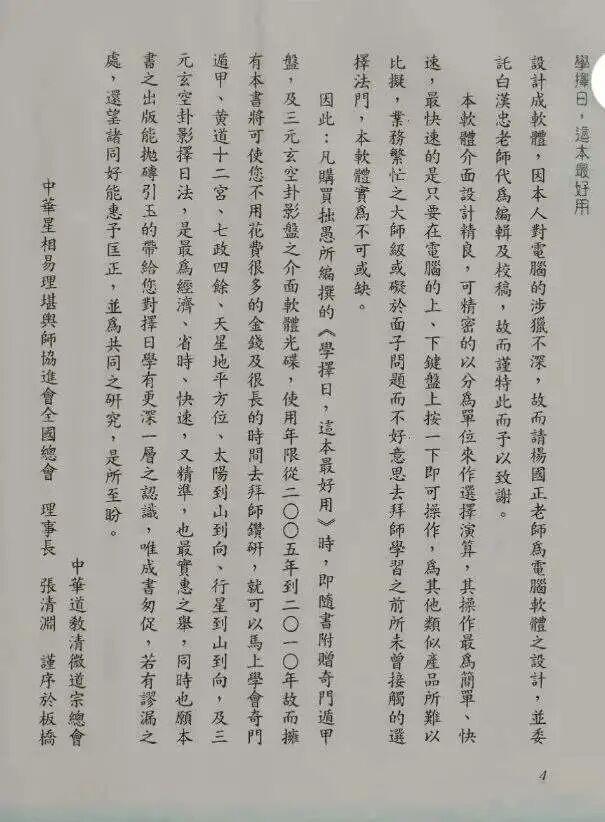 學擇日，這本最好用
設計成軟體，因本人對電腦的涉獵不深，故而請楊國正老師為電腦軟體之設計，並委
託白漢忠老師代為編輯及校稿，故而謹特此而予以致謝。
本軟體介面設計精良，可精密的以分為單位來作選擇演算，其操作最為簡單、快
速，最快速的是只要在電腦的上、下鍵盤上按一下即可操作，為其他類似產品所難以
比擬，業務繁忙之大師級或礙於面子問題而不好意思去拜師學習之前所未曾接觸的選
擇法門，本軟體實為不可或缺。
因此：凡購買拙愚所編撰的《學擇日，這本最好用》時，即隨書附贈奇門遁甲
盤，及三元玄空卦影盤之介面軟體光碟，使用年限從二〇〇五年到二〇一〇年故而擁
有本書將可使您不用花費很多的金錢及很長的時間去拜師鑽研，就可以馬上學會奇門
遁甲、黃道十二宮、七政四餘、天星地平方位、太陽到山到向、行星到山到向，及三
元玄空卦影擇日法，是最為經濟、省時、快速，又精準，也最實惠之舉，同時也願本
書之出版能拋磚引玉的帶給您對擇日學有更深一層之認識，唯成書匆促，若有謬漏之
處，還望諸同好能惠予匡正，並為共同之研究，是所至盼。
中華道教清微道宗總會
中華星相易理堪輿師協進會全國總會　理事長　張清淵　謹序於板橋
4